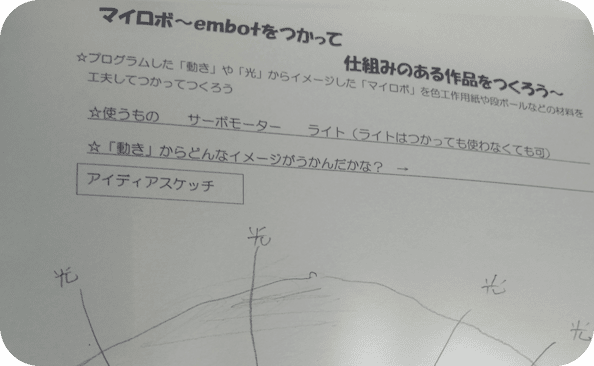 マイロボ～embotをつかって
仕組みのある作品をつくろう～
☆プログラムした「動き」や「光」からイメージした「マイロボ」を色工作用紙や段ボールなどの材料を
工夫してつかってつくろう
☆使うもの　サーボモーター　ライト（ライトはつかっても使わなくても可）
☆「動き」からどんなイメージがうかんだかな？　→
アイディアスケッチ
光
光
光
光